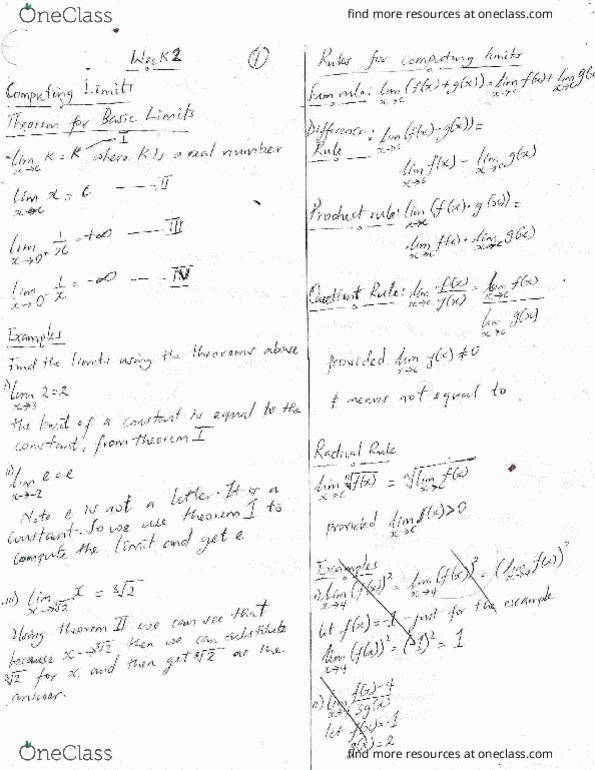 OneClass
find more resources at oneclass.com
Week 2
①
Computing Limits
Theorem for Basic Limits
I
lim K = K where K is a real number
x→c
lim x = c ------ II
x→c
lim 1/x = +∞ ------ III
x→0⁺
lim 1/x = -∞ ------ IV
x→0⁻
Examples
Find the limits using the theorems above
i) lim 2 = 2
x→3
the limit of a constant is equal to the
constant, from theorem I
ii) lim e = e
x→-2
Note e is not a letter. It is a
constant. So we use theorem I to
compute the limit and get e
iii) lim x = ³√2
x→³√2
Using theorem II we can see that
because x→³√2, then we can substitute
³√2 for x and then get ³√2 as the
answer.
Rules for computing limits
Sum rule: lim (f(x)+g(x)) = lim f(x) + lim g(x)
x→c x→c x→c
Difference Rule: lim (f(x)-g(x)) =
x→c
lim f(x) - lim g(x)
x→c x→c
Product rule: lim (f(x)·g(x)) =
x→c
lim f(x) · lim g(x)
x→c x→c
Quotient Rule: lim f(x)/g(x) = lim f(x) / lim g(x)
x→c x→c x→c
provided lim g(x) ≠ 0
x→c
≠ means not equal to.
Radical Rule
lim ⁿ√f(x) = ⁿ√lim f(x)
x→c x→c
provided lim f(x) > 0
x→c
Examples
i) lim (f(x))² = lim (f(x))² = (lim f(x))²
x→4 x→4 x→4
let f(x) = -1 - just for the example
lim (f(x))² = (-1)² = 1
x→4
ii) lim f(x)-4 / 3g(x)
x→4
let f(x) = -1
g(x) = 2
OneClass
find more resources at oneclass.com